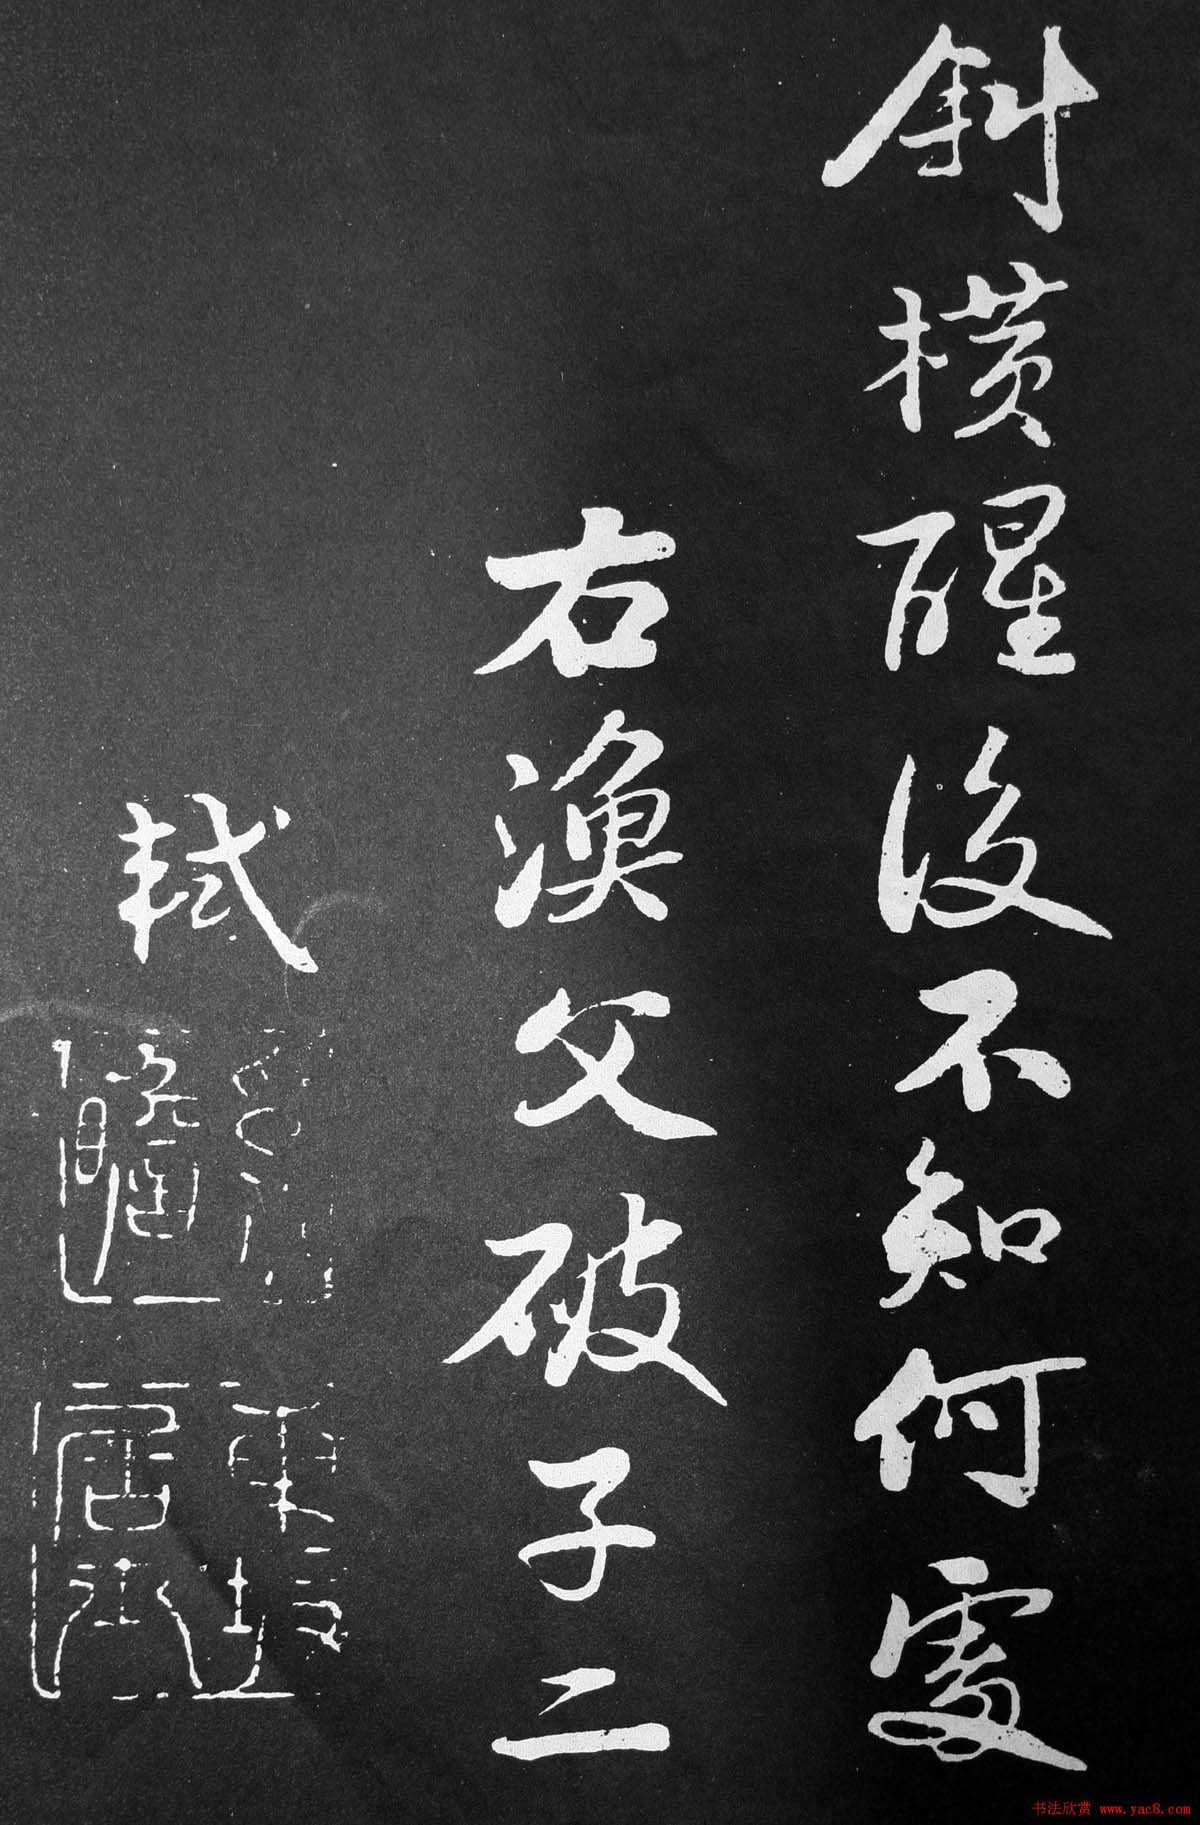 斜橫醒後不知何處
右漁父破子二
軾
子瞻
東坡居士
书法欣赏 www.yac8.com